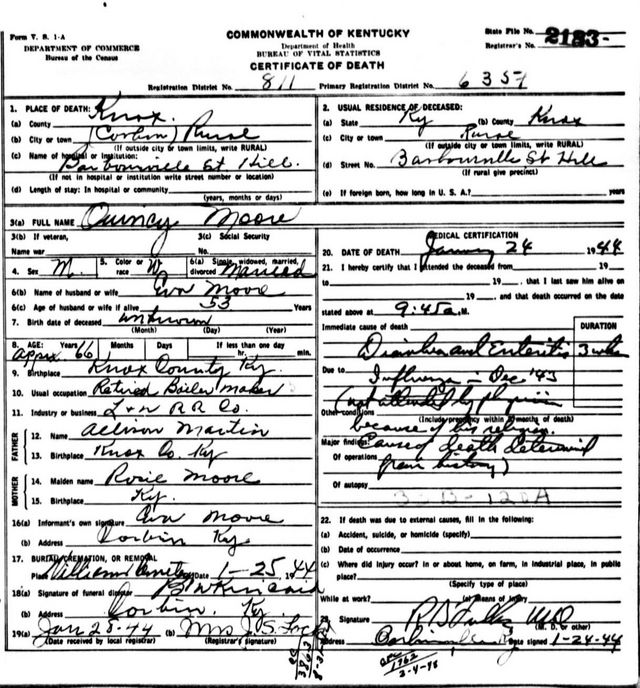 Form V. S. 1-A
DEPARTMENT OF COMMERCE
Bureau of the Census
COMMONWEALTH OF KENTUCKY
Department of Health
BUREAU OF VITAL STATISTICS
CERTIFICATE OF DEATH
State File No. 2183-
Registrar's No.
Registration District No. 811 Primary Registration District No. 6357
1. PLACE OF DEATH:
(a) County Knox
(b) City or town (Corbin) Rural
(If outside city or town limits, write RURAL)
(c) Name of hospital or institution:
Barbourville St Hill.
(If not in hospital or institution write street number or location)
(d) Length of stay: In hospital or community
(years, months or days)
2. USUAL RESIDENCE OF DECEASED:
(a) State Ky (b) County Knox
(c) City or town Rural
(If outside city or town limits, write RURAL)
(d) Street No. Barbourville St Hill
(If rural give precinct)
(e) If foreign born, how long in U. S. A.? years
3(a) FULL NAME Quincy Moore
3(b) If veteran,
Name war
3(c) Social Security
No.
4. Sex M. 5. Color or race W 6(a) Single, widowed, married, divorced Married
6(b) Name of husband or wife Eva Moore
6(c) Age of husband or wife if alive 53 Years
7. Birth date of deceased unknown
(Month) (Day) (Year)
8. AGE: Years Months Days If less than one day
appx 66 hr. min.
9. Birthplace Knox County Ky.
10. Usual occupation Retired Boiler maker
11. Industry or business L & N RR Co.
FATHER
12. Name Allison Martin
13. Birthplace Knox Co. Ky
MOTHER
14. Maiden name Rosie Moore
15. Birthplace Ky.
16(a) Informant's own signature Eva Moore
(b) Address Corbin Ky
17. BURIAL, CREMATION, OR REMOVAL
Place Date 1-25 1944
18(a) Signature of funeral director
(b) Address Corbin, Ky.
19(a) Jan 28-44 (b) Mrs J. S.
(Date received by local registrar) (Registrar's signature)
MEDICAL CERTIFICATION
20. DATE OF DEATH January 24 1944
21. I hereby certify that I attended the deceased from 19
to 19 , that I last saw him alive on
19 , and that death occurred on the date
stated above at 9:45 a M.
Immediate cause of death DURATION
Diarrhea and Enteritis 3 wks
Due to Influenza in Dec '43
(not attended by physician
Other conditions because of his religion.
(Include pregnancy within 3 months of death)
Major findings: Cause of death determined
Of operations from history)
Of autopsy
33B-120A
22. If death was due to external causes, fill in the following:
(a) Accident, suicide, or homicide (specify)
(b) Date of occurrence
(c) Where did injury occur? In or about home, on farm, in industrial place, in public
place?
(Specify type of place)
While at work? (e) Means of injury
23. Signature M.D
(M. D. or other)
Address Date signed 1-24-44